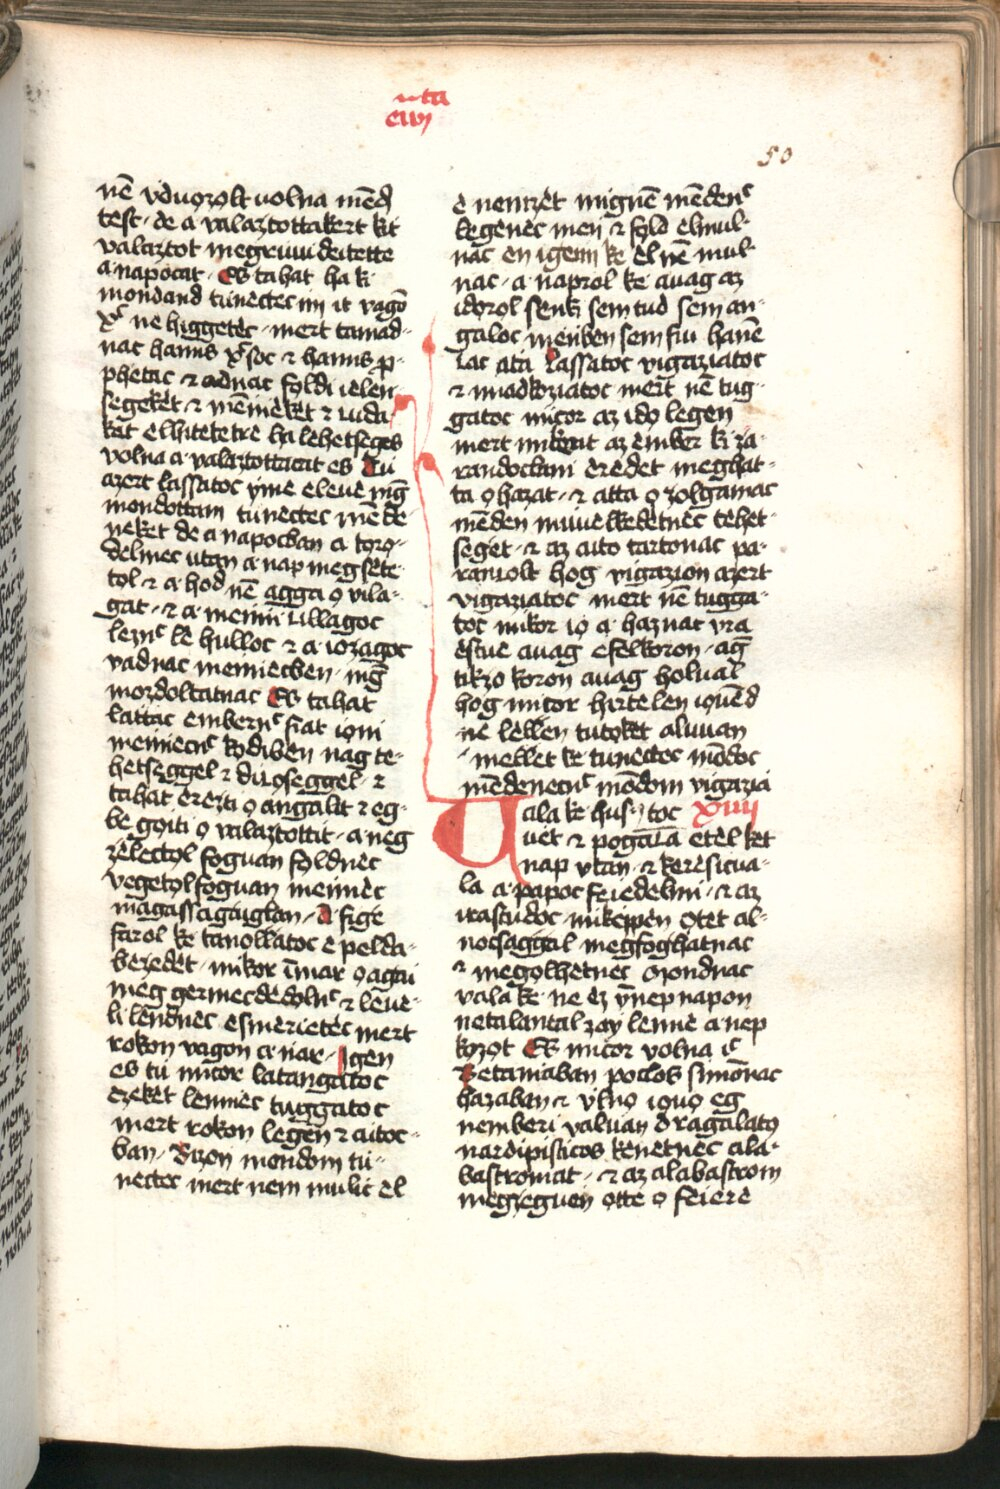 50
nē vduozolt volna mēd
test · de a valaztottakert kit
valaztot megrúuideitette
a napocat · Es tahat ha ki
mondand tunectec im it vagō
xc̄ ne higgetèc · mert tamad-
nac hamis xc̄soc ⁊ hamis p̄-
phetac ⁊ adnac foldi ielen-
segeket ⁊
kat elhitetetre ha lehetseges
volna a valaztottacat es Tú
azert lassatoc yme eleue mḡ
mondottam tunectec mēde-
neket de a napocban a toro-
delmec utan a nap megsète-
tol ⁊ a hod nē agga o vila-
gat · ⁊ a menni úllagoc
leznc̄ le hulloc ⁊ a iozagoc
vadnac menniecben · mḡ
mozdoltatnac Es tahat
lattac embernc̄ fiat ioni
menniecnc̄ kodiben nag te-
hetseggel ⁊ dúcoseggel · ⁊
tahat erezti o angalit ⁊ eg-
be goiti o valaztottit · a neg
zelectol foguan foldnec
vegetol foguan mennec
magassagaiglan · A fige
farol ke tanollatoc e pelda-
bezedet · mikor īmar o agai
meg germecdèdolnc̄ ⁊ leue-
li lendnec esmerietèc mert
rokon vagon a nar · Igen
es tú micor latangatoc
ezeket lennièc tuggatoc
mert rokon legen ⁊ aitoc-
ban · Bizon mondom tú-
nectec mert nem mulic el
e nemzèt mignē mēdenc̄
kegenec men ⁊ fold elmul-
nac en igeim ke el nē mul-
nac · a naprol ke auag az
idorol senki sem tud sem an-
galoc menben sem fiu hanē
čac ata Lassatoc vigaziatoc
⁊ imadkoziatoc mert nē tug-
gatoc micor az ido legen
mert mikent az ember ki za-
randoclani eredet meghat-
ta o hazat · ⁊ atta o zolgainac
mēden múuelkedetnec tehet-
seget · ⁊ az aito tartonac pa-
ranciolt hog vigazion azert
vigaziatoc mert nē tugga-
toc mikor io a haznac vra
èstue auag efelkoron · ag̃
tikzo koron auag holual
hog micor hirtelen iouēd
ne lellen tutoket aluuan
mellet ke tunectec mōdoc
mēdenecnc̄ mōdom vigazia
toc XIIII
Uala ke hus-
uet ⁊ pogača etèl ket
nap vtan · ⁊ keresicua-
la a papoc feiedelmi · ⁊ az
irastudoc mikeppen otet al-
nocsaggal megfoghatnac
⁊ megolhetnec Mondnac
vala ke ne ez ÿnep napon
netalantal zay lenne a nep
kozot Es micor volna ic̄
Betaniaban poclos simōnac
hazaban ⁊ vlno iouo eg
nemberi valuan dragalato
nardipisticos kenetnec ala-
bastromat · ⁊ az alabastrom
megzeguen otte o feiere